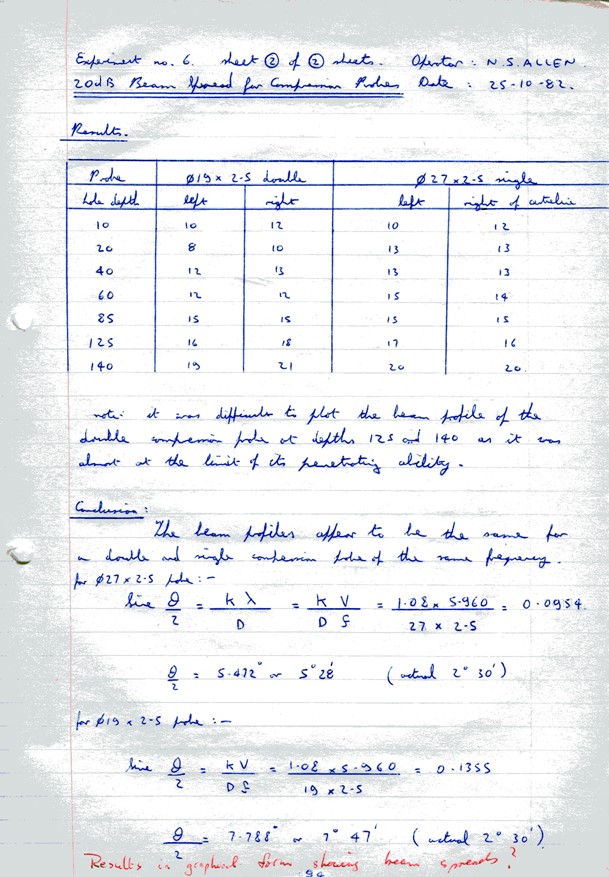 Experiment no. 6. sheet ② of ② sheets. Operator : N.S. ALLEN.
20dB Beam Spread for Compression Probes Date : 25-10-82.
Results.
Probe ø19 x 2-5 double ø27 x 2-5 single
hole depth left right left right of centreline
10 10 12 10 12
20 8 10 13 13
40 12 13 13 13
60 12 12 15 14
85 15 15 15 15
125 16 18 17 16
140 19 21 20 20.
note: it was difficult to plot the beam profile of the
double compression probe at depths 125 and 140 as it was
almost at the limit of its penetrating ability.
Conclusion:
The beam profiles appear to be the same for
a double and single compression probe of the same frequency.
for ø27 x 2-5 probe :-
Sine θ/2 = k λ / D = k V / D f = 1.08 x 5.960 / 27 x 2-5 = 0.0954.
θ/2 = 5.472° or 5° 28' (actual 2° 30')
for ø19 x 2-5 probe :-
Sine θ/2 = k V / D f = 1.08 x 5.960 / 19 x 2-5 = 0.1355
θ/2 = 7.788° or 7° 47' (actual 2° 30')
Results in graphical form showing beam spreads?